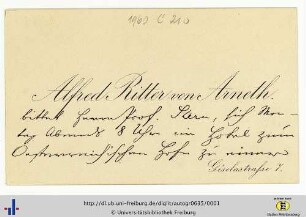 1960 C 210
Alfred Ritter von Arneth.
bittet Herrn Prof. Stern, sich Mon-
tag Abends 8 Uhr im Hotel zum
Oesterreichischen Hofe zu einem
Giselastraße 7.
http://dl.ub.uni-freiburg.de/diglit/autogr0695/0001
© Universitätsbibliothek Freiburg